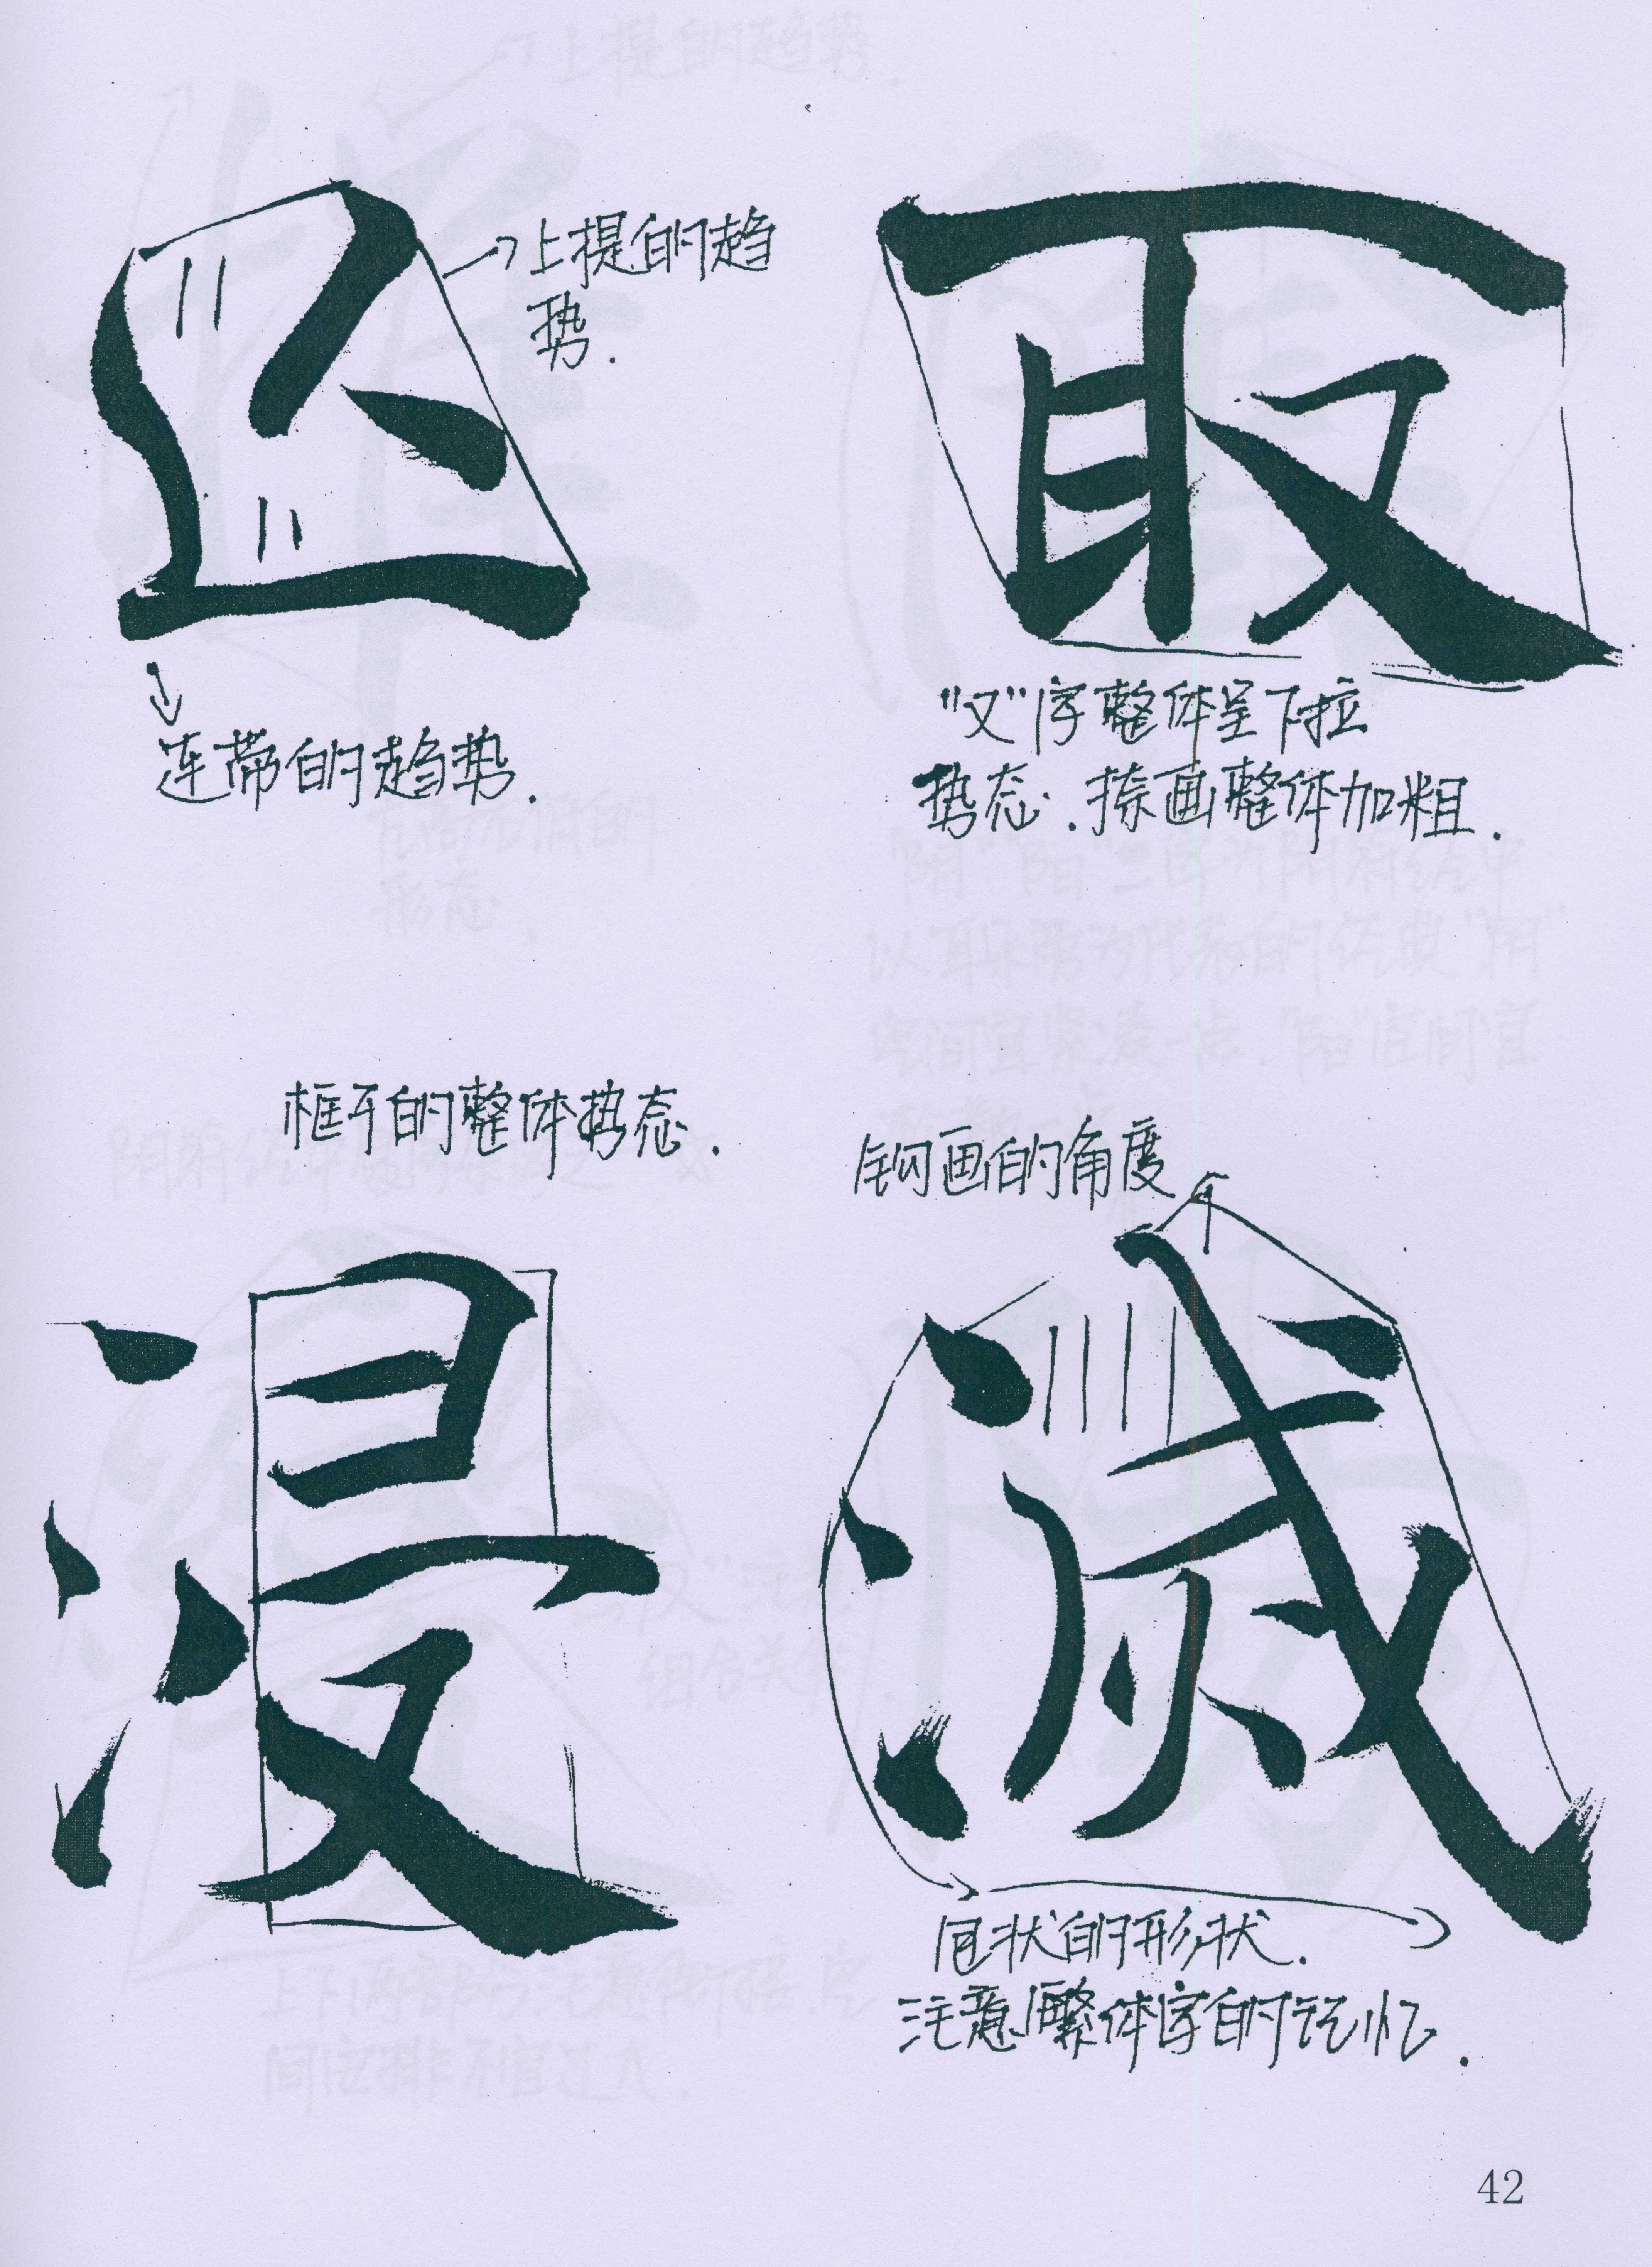 以
上提的趋
势.
连带的趋势.
取
“又”字整体呈下拉
势态.捺画整体加粗.
的整体势态.
浸
钩画的角度
滅
状的形状.
注意繁体字的记忆.
42